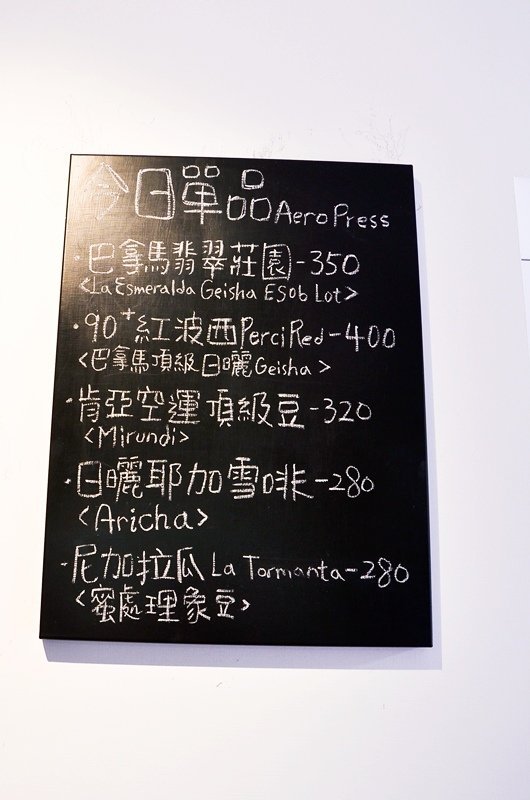 今日單品 Aero Press
・巴拿馬翡翠莊園-350
<La Esmeralda Geisha ESOb Lot>
・90⁺紅波西 Perci Red-400
<巴拿馬頂級日曬Geisha>
・肯亞空運頂級豆-320
<Mirundi>
・日曬耶加雪啡-280
<Aricha>
・尼加拉瓜 La Tormanta-280
<蜜處理象豆>